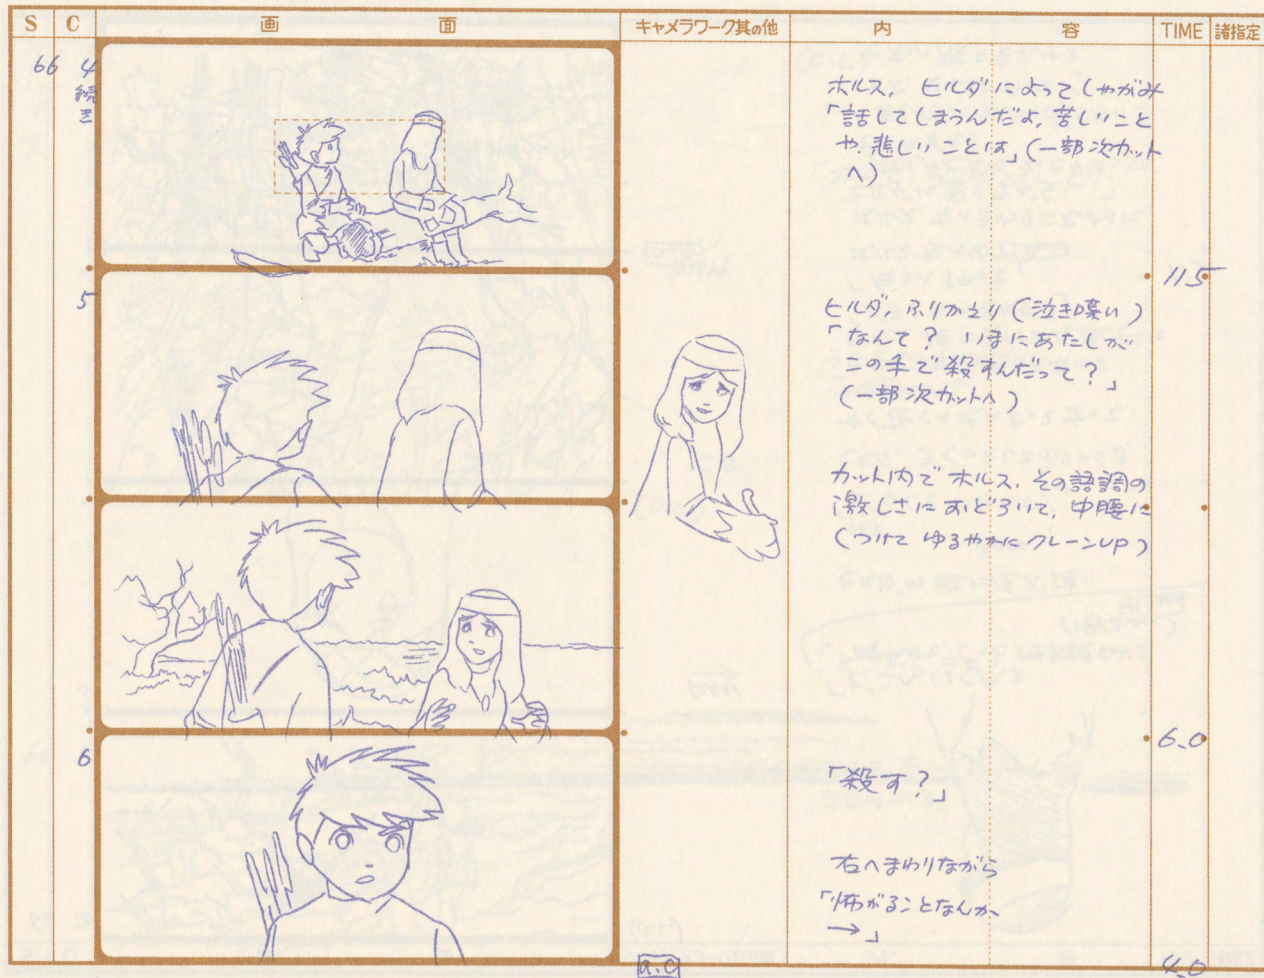 S C 画面 キャメラワーク其の他 内容 TIME 諸指定
66 4
続き
ホルス、ヒルダによってしゃがみ
「話してしまうんだよ、苦しいこと
や、悲しいことは」(一部次カット
へ)
115
5
ヒルダ、ふりかえり(泣き嗤い)
「なんて? いまにあたしが
この手で殺すんだって?」
(一部次カットへ)
カット内でホルス、その語調の
激しさにおどろいて、中腰に
(つけて ゆるやかにクレーンUP)
6.0
6
「殺す?」
右へまわりながら
「怖がることなんか
→」
a.c
4.0